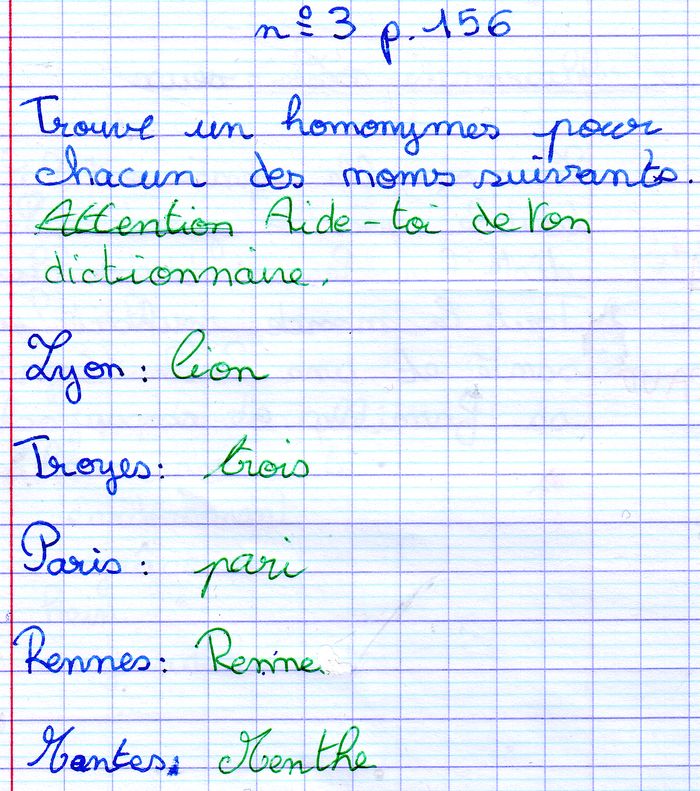 nº 3 p. 156
Trouve un homonymes pour
chacun des noms suivants.
Attention Aide-toi de ton
dictionnaire.
Lyon : lion
Troyes : trois
Paris : pari
Rennes : Renne
Mantes. Menthe